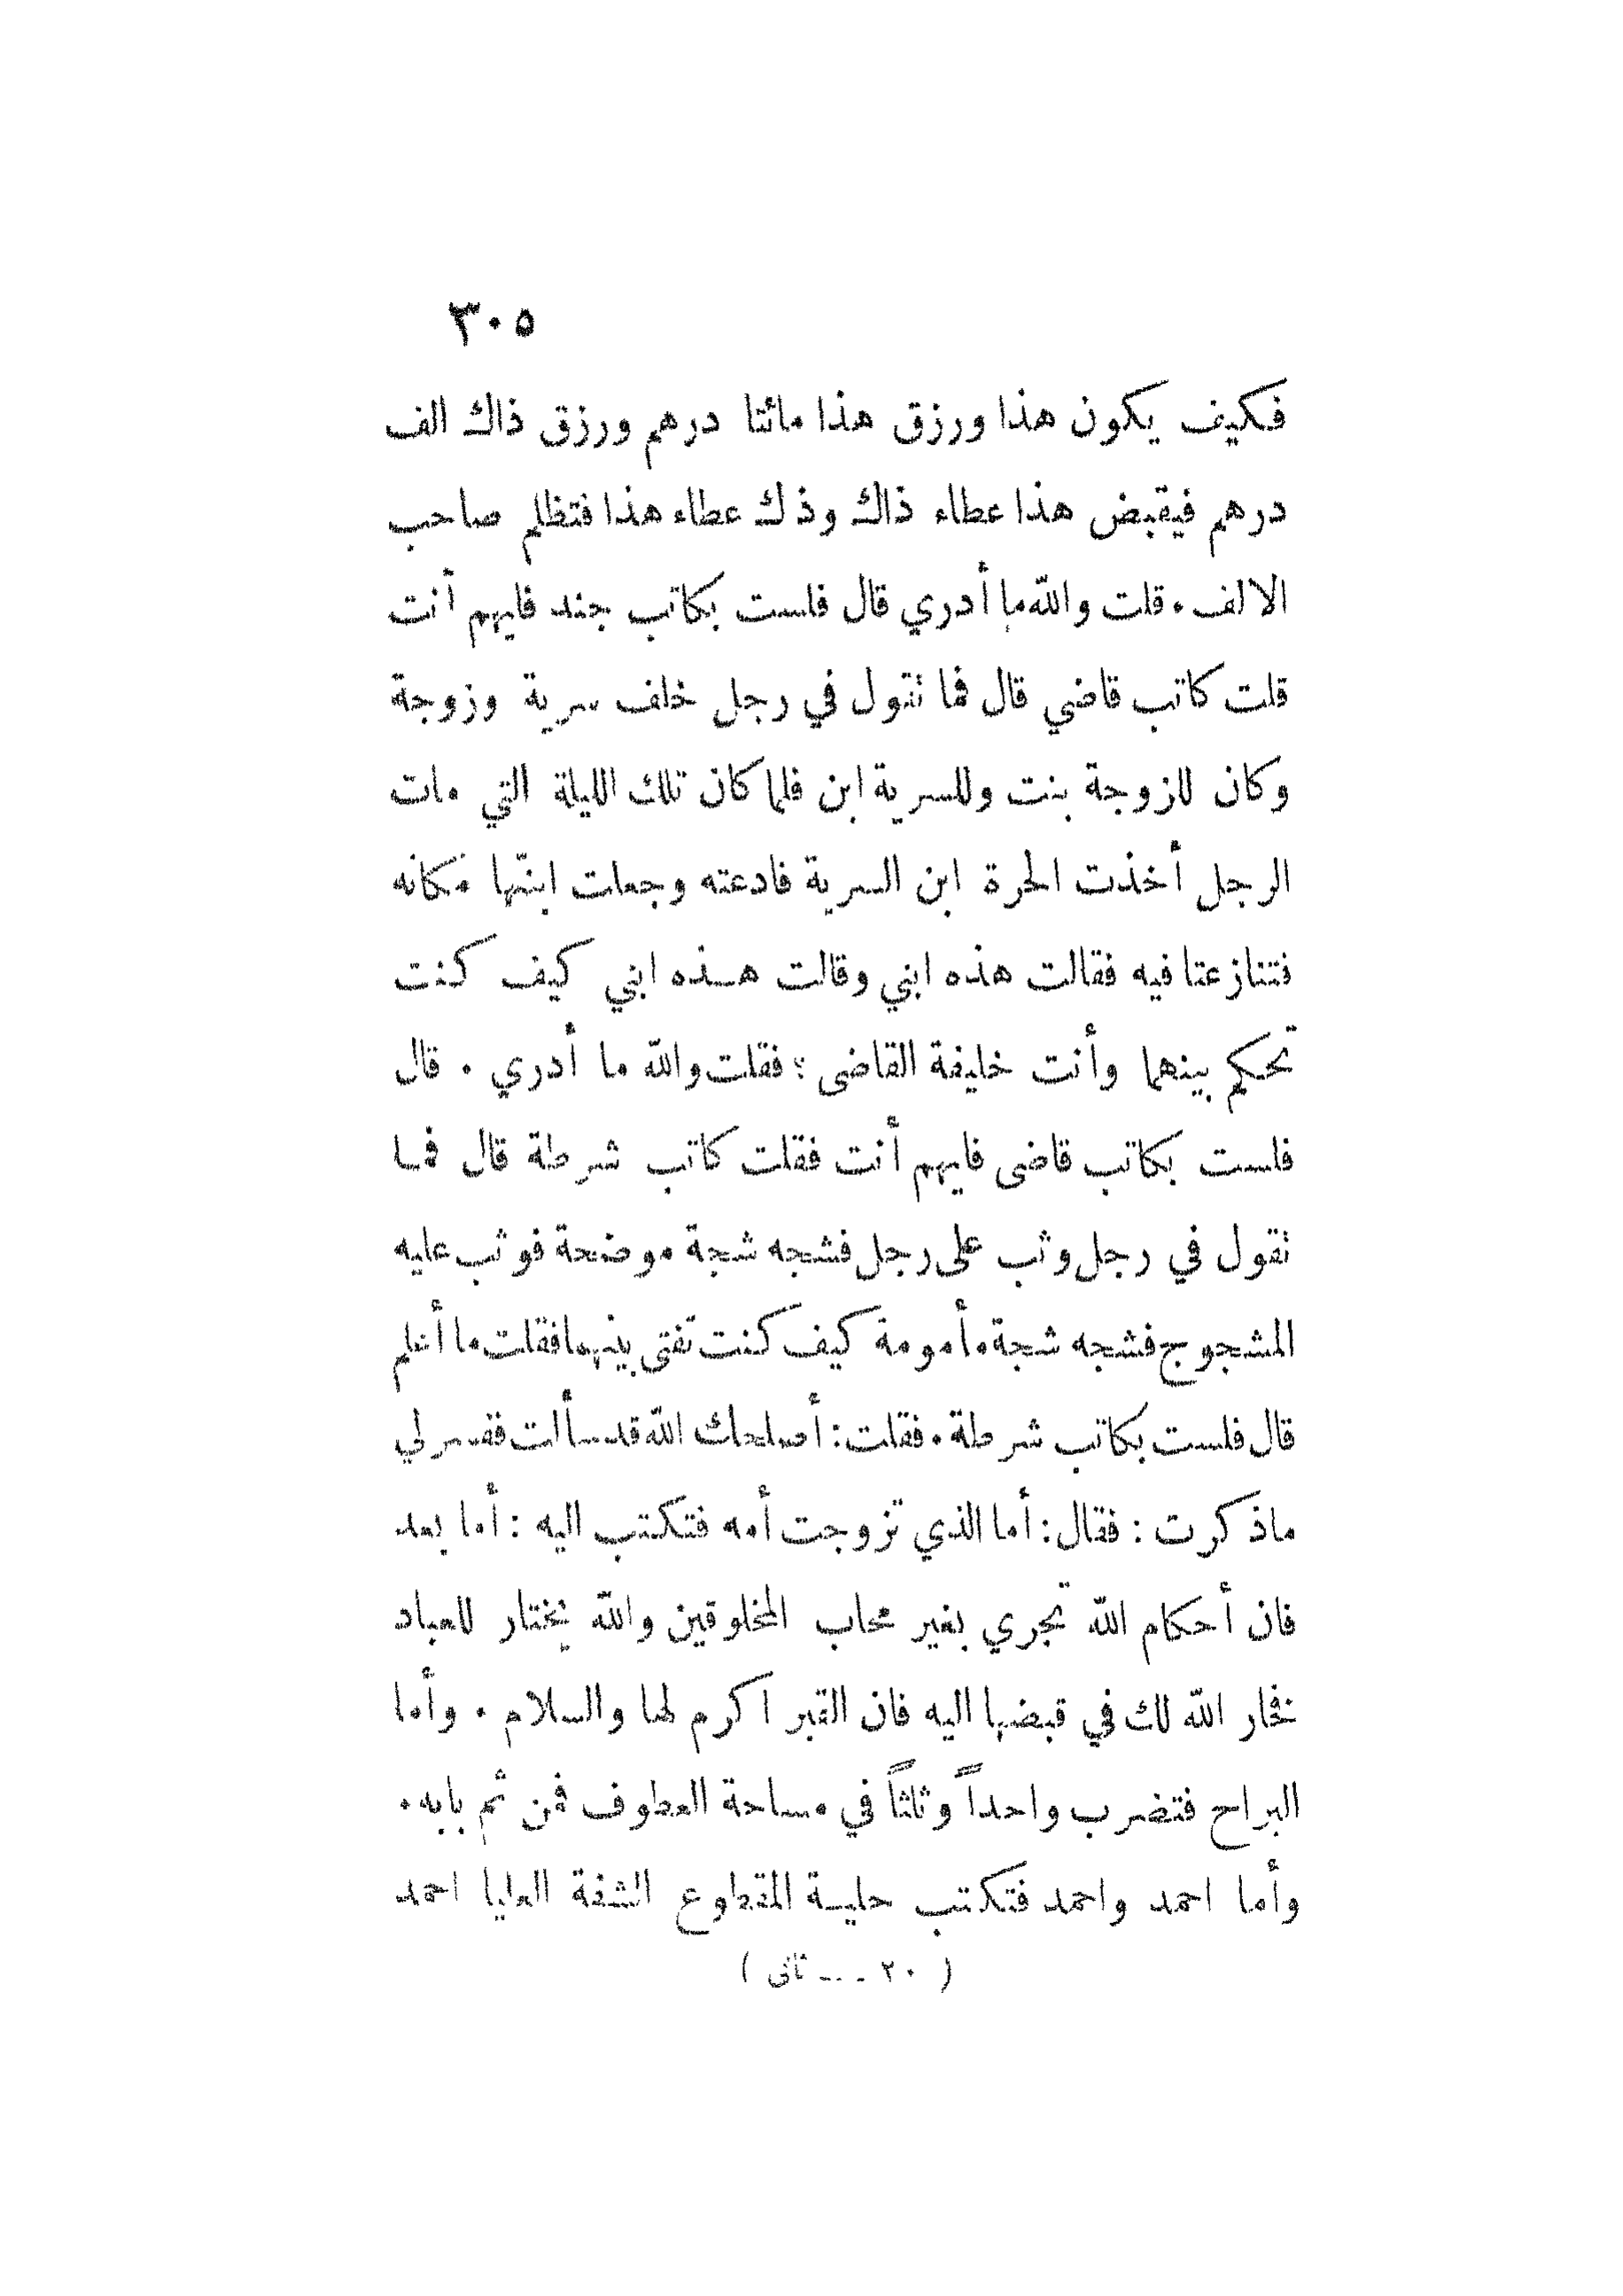 ٣٠٥
فكيف يكون هذا ورزق هذا مائتا درهم ورزق ذاك الف
درهم فيقبض هذا عطاء ذاك وذك عطاء هذا فتظلم صاحب
الالف. قلت والله ما أدري قال فلست بكاتب جند فايهم أنت
قلت كاتب قاضي قال فما تقول في رجل خلف سرية وزوجة
وكان للزوجة بنت وللسرية ابن فلما كان تلك الليلة التي مات
الرجل أخذت الحرة ابن السرية فادعته وجعلت ابنتها مكانه
فتنازعتا فيه فقالت هذه ابني وقالت هذه ابني كيف كنت
تحكم بينهما وأنت خليفة القاضى ؛ فقلت والله ما أدري . قال
فلست بكاتب قاضى فايهم أنت فقلت كاتب شرطة قال فما
تقول في رجل وثب على رجل فشجه شجة موضحة فوثب عليه
المشجوج فشجه شجة مأمومة كيف كنت تفتى بينهما فقلت ما أعلم
قال فلست بكاتب شرطة. فقلت: أصلحك الله قد سألت ففسر لي
ماذكرت : فقال: أما الذي تزوجت أمه فتكتب اليه : أما بعد
فان أحكام الله تجري بغير محاب المخلوقين والله يختار للعباد
فخار الله لك في قبضها اليه فان القبر اكرم لها والسلام . وأما
البراح فتضرب واحداً وثلثاً في مساحة العطوف فمن ثم بابه.
وأما احمد واحمد فتكتب حلية المقطوع الشفة العليا احمد
( ٢٠ -- ثانى )